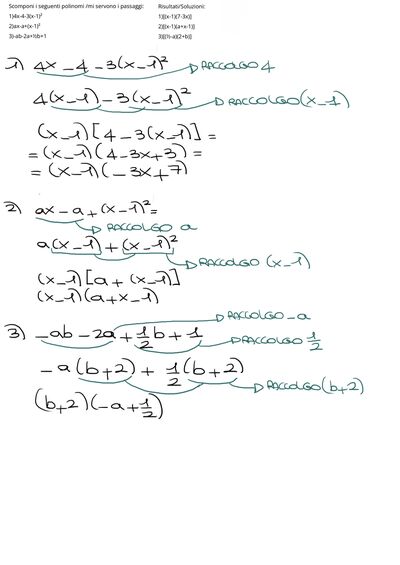 Scomponi i seguenti polinomi /mi servono i passaggi: Risultati/Soluzioni:
1)4x-4-3(x-1)² 1)[(x-1)(7-3x)]
2)ax-a+(x-1)² 2)[(x-1)(a+x-1)]
3)-ab-2a+½b+1 3)[(½-a)(2+b)]
1) 4x-4-3(x-1)² RACCOLGO 4
4(x-1)-3(x-1)² RACCOLGO (x-1)
(x-1)[4-3(x-1)]=
=(x-1)(4-3x+3)=
=(x-1)(-3x+7)
2) ax-a+(x-1)²=
RACCOLGO a
a(x-1)+(x-1)²
RACCOLGO (x-1)
(x-1)[a+(x-1)]
(x-1)(a+x-1)
RACCOLGO -a
3) -ab-2a+½b+1
RACCOLGO ½
-a(b+2)+½(b+2)
RACCOLGO (b+2)
(b+2)(-a+½)